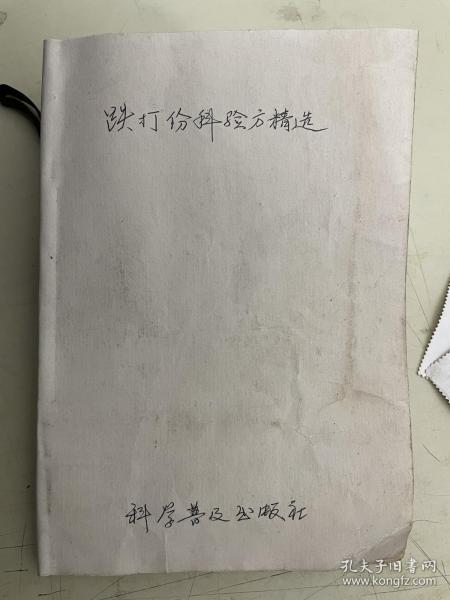 跌打份科验方精选
科学普及出版社
孔夫子旧书网
www.kongfz.com